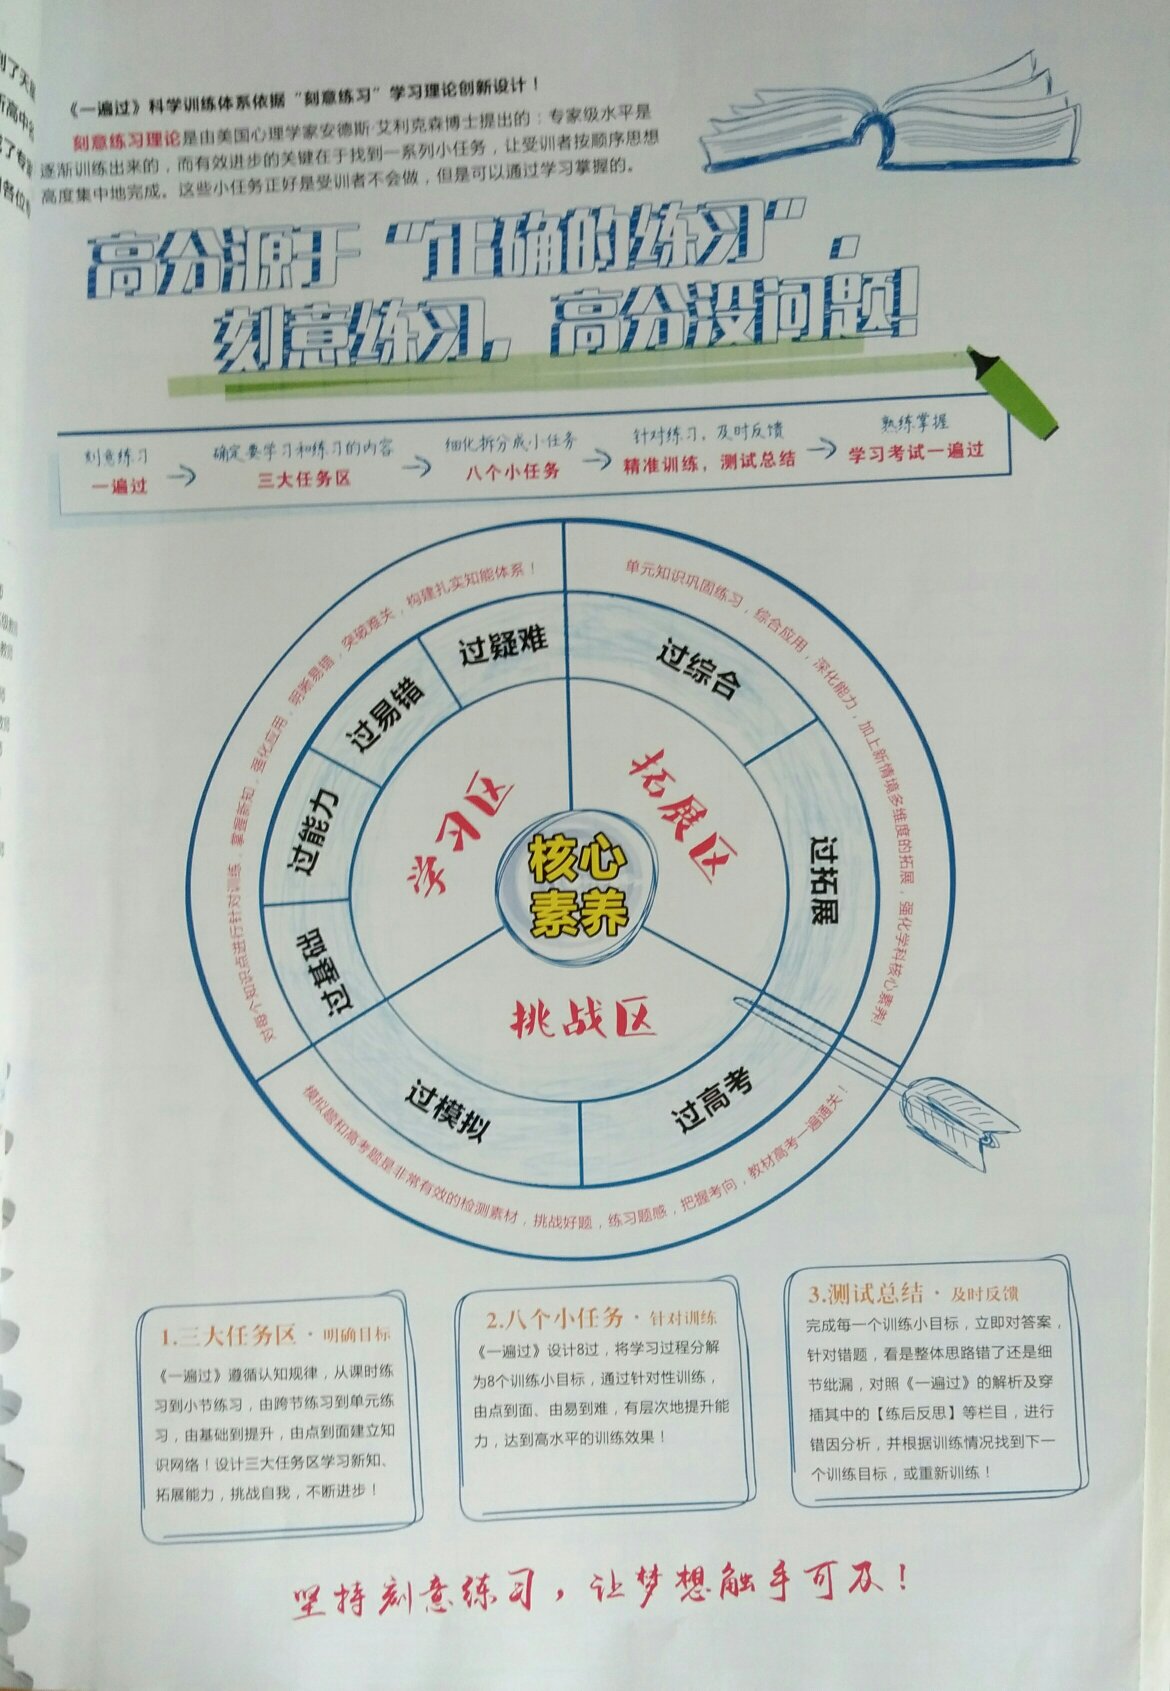 《一遍过》科学训练体系依据“刻意练习”学习理论创新设计！
刻意练习理论是由美国心理学家安德斯·艾利克森博士提出的：专家级水平是
逐渐训练出来的，而有效进步的关键在于找到一系列小任务，让受训者按顺序思想
高度集中地完成。这些小任务正好是受训者不会做，但是可以通过学习掌握的。
高分源于“正确的练习”，
刻意练习，高分没问题！
刻意练习
一遍过
确定要学习和练习的内容
三大任务区
细化拆分成小任务
八个小任务
针对练习，及时反馈
精准训练，测试总结
熟练掌握
学习考试一遍过
对每个知识点进行针对训练，掌握新知，强化应用，明晰易错，突破难关，构建扎实知能体系！
单元知识巩固练习，综合应用，深化能力，加上新情境多维度的拓展，强化学科核心素养！
过基础
过能力
过易错
过疑难
过综合
过拓展
学习区
拓展区
核心
素养
挑战区
过模拟
过高考
模拟题和高考题是非常有效的检测素材，挑战好题，练习题感，把握考向，教材高考一遍通关！
1.三大任务区·明确目标
《一遍过》遵循认知规律，从课时练
习到小节练习，由跨节练习到单元练
习，由基础到提升，由点到面建立知
识网络！设计三大任务区学习新知、
拓展能力，挑战自我，不断进步！
2.八个小任务·针对训练
《一遍过》设计8过，将学习过程分解
为8个训练小目标，通过针对性训练，
由点到面、由易到难，有层次地提升能
力，达到高水平的训练效果！
3.测试总结·及时反馈
完成每一个训练小目标，立即对答案，
针对错题，看是整体思路错了还是细
节纰漏，对照《一遍过》的解析及穿
插其中的【练后反思】等栏目，进行
错因分析，并根据训练情况找到下一
个训练目标，或重新训练！
坚持刻意练习，让梦想触手可及！